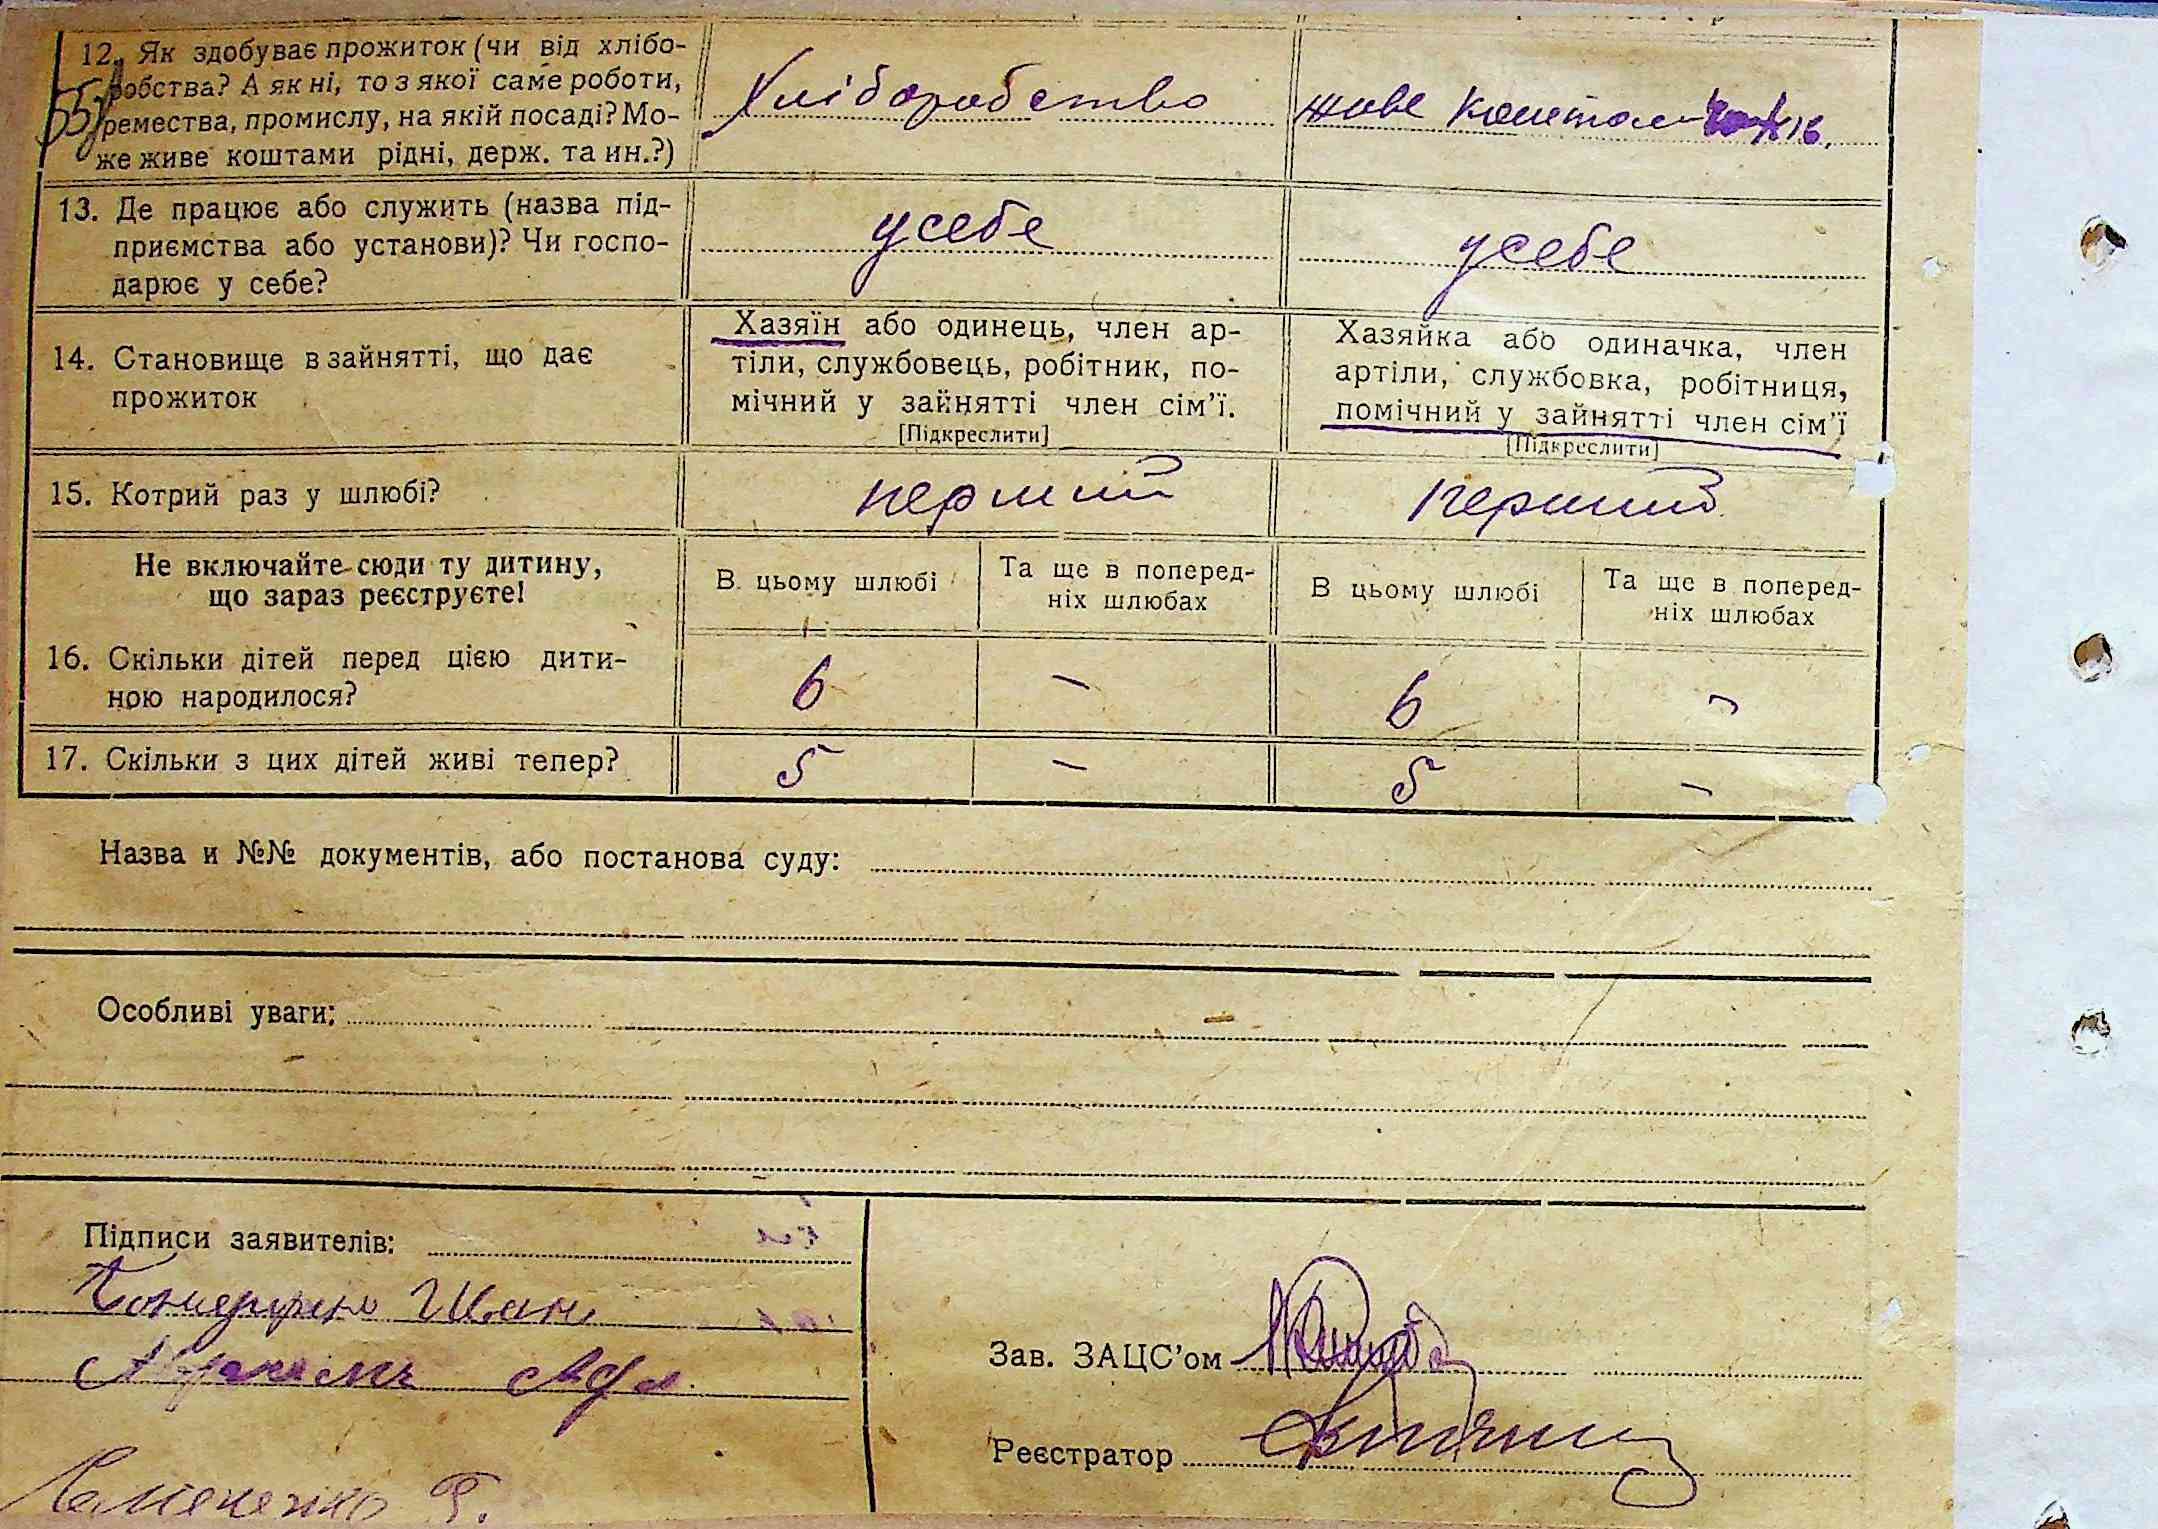 12. Як здобуває прожиток (чи від хлібо-
робства? А як ні, то з якої саме роботи,
ремества, промислу, на якій посаді? Мо-
же живе коштами рідні, держ. та ин.?)
Хліборобство
живе коштом
55
13. Де працює або служить (назва під-
приємства або установи)? Чи госпо-
дарює у себе?
усебе
усебе
14. Становище в зайнятті, що дає
прожиток
Хазяїн або одинець, член ар-
тіли, службовець, робітник, по-
мічний у зайнятті член сім'ї.
[Підкреслити]
Хазяйка або одиначка, член
артіли, службовка, робітниця,
помічний у зайнятті член сім'ї
[Підкреслити]
15. Котрий раз у шлюбі?
перший
перший
Не включайте сюди ту дитину,
що зараз реєструєте!
В цьому шлюбі
Та ще в поперед-
ніх шлюбах
В цьому шлюбі
Та ще в поперед-
ніх шлюбах
16. Скільки дітей перед цією дити-
ною народилося?
6 – 6 –
17. Скільки з цих дітей живі тепер?
5 – 5 –
Назва и №№ документів, або постанова суду:
Особливі уваги: –
Підписи заявителів:
Іван
Зав. ЗАЦС'ом
Реєстратор